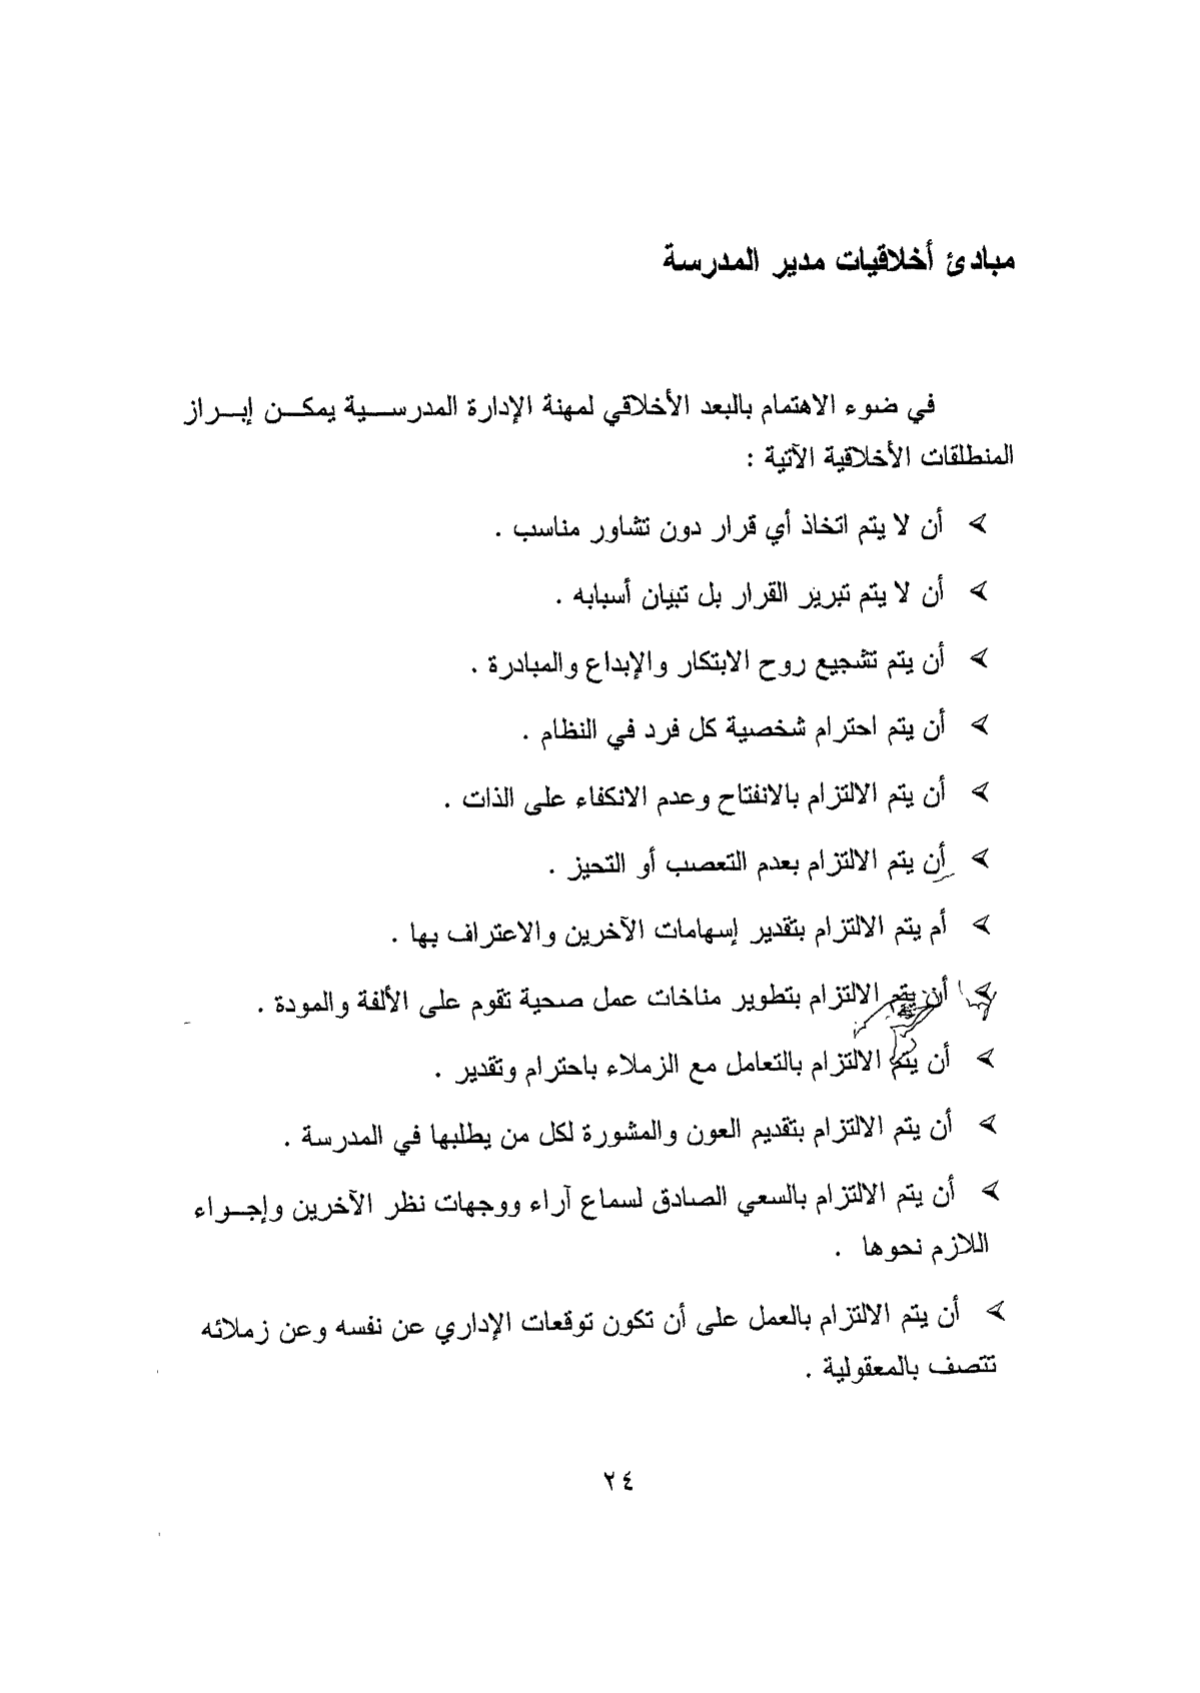 مبادئ أخلاقيات مدير المدرسة
في ضوء الاهتمام بالبعد الأخلاقي لمهنة الإدارة المدرسية يمكن إبراز
المنطلقات الأخلاقية الآتية :
أن لا يتم اتخاذ أي قرار دون تشاور مناسب .
أن لا يتم تبرير القرار بل تبيان أسبابه .
أن يتم تشجيع روح الابتكار والإبداع والمبادرة .
أن يتم احترام شخصية كل فرد في النظام .
أن يتم الالتزام بالانفتاح وعدم الانكفاء على الذات .
أن يتم الالتزام بعدم التعصب أو التحيز .
أم يتم الالتزام بتقدير إسهامات الآخرين والاعتراف بها .
أن يتم الالتزام بتطوير مناخات عمل صحية تقوم على الألفة والمودة .
أن يتم الالتزام بالتعامل مع الزملاء باحترام وتقدير .
أن يتم الالتزام بتقديم العون والمشورة لكل من يطلبها في المدرسة .
أن يتم الالتزام بالسعي الصادق لسماع آراء ووجهات نظر الآخرين وإجراء
اللازم نحوها .
أن يتم الالتزام بالعمل على أن تكون توقعات الإداري عن نفسه وعن زملائه
تتصف بالمعقولية .
٢٤